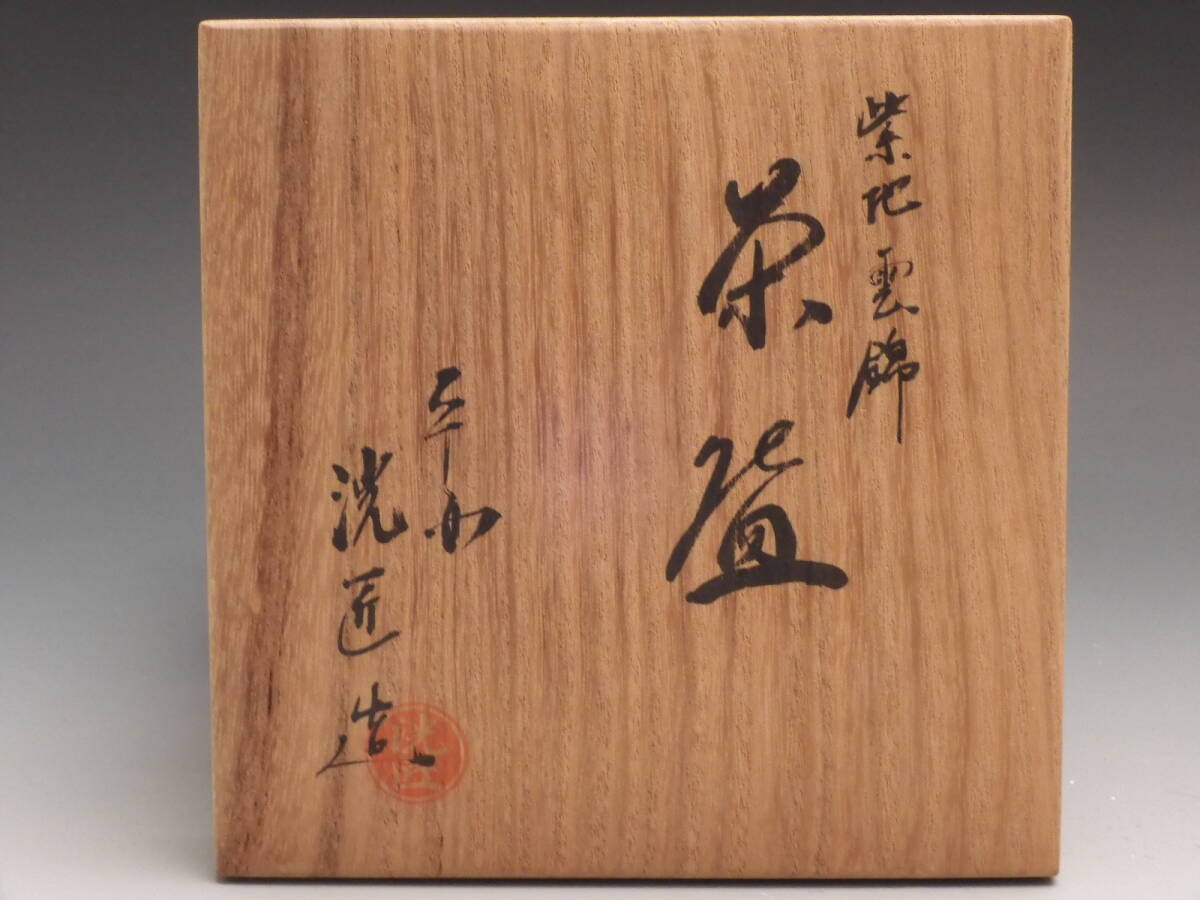 紫地雲錦
茶盌
平安
洸匠造